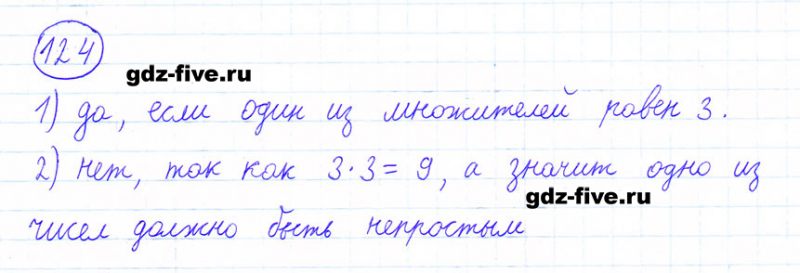 124
gdz-five.ru
1) да, если один из множителей равен 3.
2) нет, так как 3·3 = 9, а значит одно из
gdz-five.ru
чисел должно быть непростым